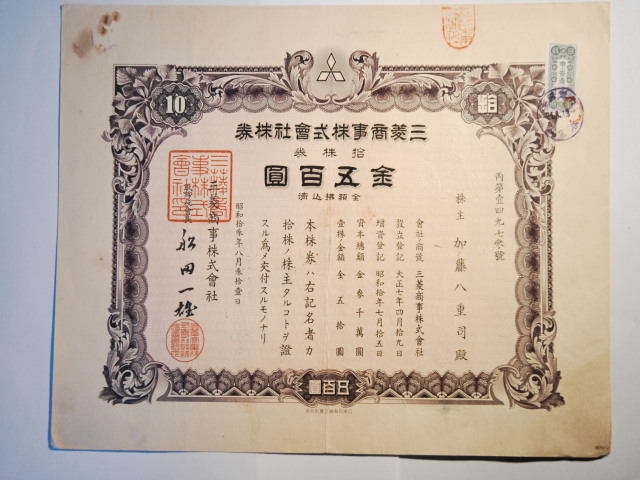 三菱商事株式會社株券
拾株券
金五百圓
全額拂込濟
10
丙第壹四九七參號
株主 加藤八重司殿
會社商號 三菱商事株式會社
設立登記 大正七年四月拾九日
增資登記 昭和拾年七月拾五日
資本總額 金參千萬圓
壹株ノ金額 金五拾圓
本株券ハ右記名者カ
拾株ノ株主タルコトヲ證
スル爲メ交付スルモノナリ
三菱商事株式會社
船田一雄
三菱商事株式會社印